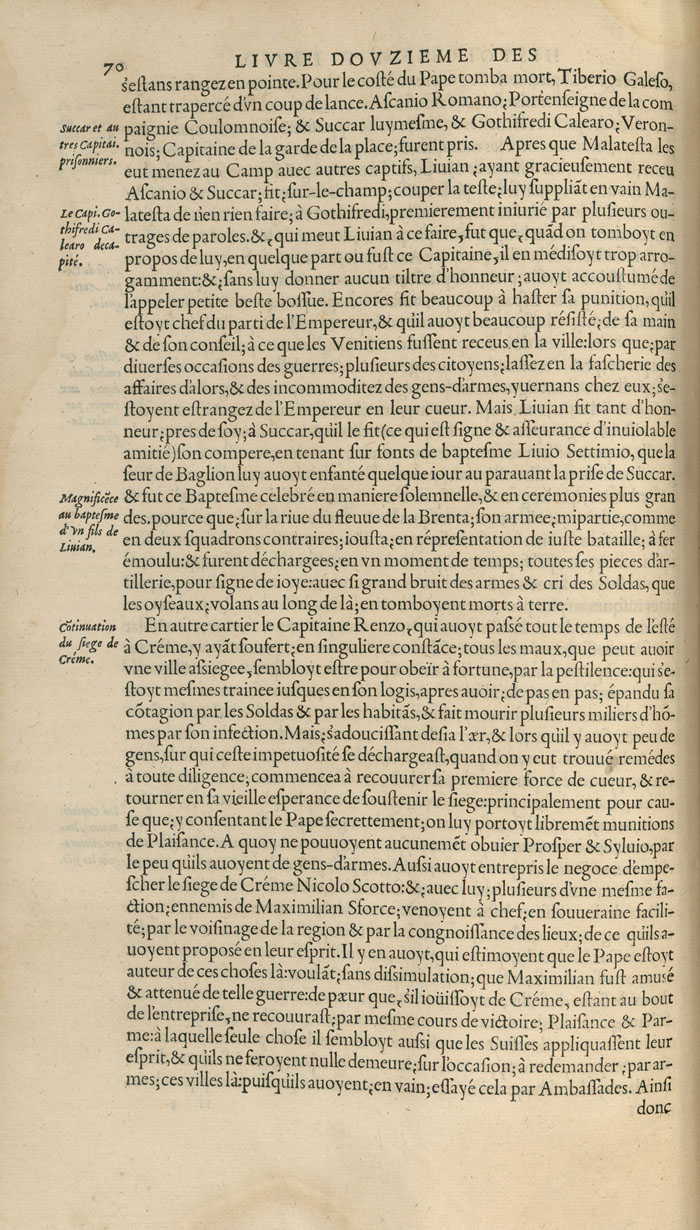 70
LIVRE DOVZIEME DES
s'estans rangez en pointe. Pour le costé du Pape tomba mort, Tiberio Galeso,
estant trapercé d'vn coup de lance. Ascanio Romano; Port'enseigne de la com
Succar et au
tres Capitai.
prisonniers.
paignie Coulomnoise; & Succar luymesme, & Gothifredi Calearo; Veron-
nois; Capitaine de la garde de la place; furent pris. Apres que Malatesta les
eut menez au Camp auec autres captifs, Liuian; ayant gracieusement receu
Ascanio & Succar; fit; sur-le-champ; couper la teste; luy suppliāt en vain Ma-
Le Capi. Go-
thifredi Ca-
learo deca-
pité.
latesta de n'en rien faire; à Gothifredi, premierement iniurié par plusieurs ou-
trages de paroles. &, qui meut Liuian à ce faire, fut que, quād on tomboyt en
propos de luy, en quelque part ou fust ce Capitaine, il en médisoyt trop arro-
gamment: &; sans luy donner aucun tiltre d'honneur; auoyt accoustumé de
l'appeler petite beste bossue. Encores fit beaucoup à haster sa punition, qu'il
estoyt chef du parti de l'Empereur, & qu'il auoyt beaucoup résisté; de sa main
& de son conseil; à ce que les Venitiens fussent receus en la ville: lors que; par
diuerses occasions des guerres; plusieurs des citoyens; lassez en la fascherie des
affaires d'alors, & des incommoditez des gens-d'armes, yuernans chez eux; s'e-
stoyent estrangez de l'Empereur en leur cueur. Mais Liuian fit tant d'hon-
neur; pres de soy; à Succar, qu'il le fit (ce qui est signe & asseurance d'inuiolable
amitié) son compere, en tenant sur fonts de baptesme Liuio Settimio, que la
seur de Baglion luy auoyt enfanté quelque iour au parauant la prise de Succar.
Magnificēce
au baptesme
d'vn fils de
Liuian.
& fut ce Baptesme celebré en maniere solemnelle, & en ceremonies plus gran
des. pource que; sur la riue du fleuue de la Brenta; son armee; mipartie, comme
en deux squadrons contraires; iousta; en répresentation de iuste bataille; à fer
émoulu: & furent déchargees; en vn moment de temps; toutes ses pieces d'ar-
tillerie, pour signe de ioye: auec si grand bruit des armes & cri des Soldas, que
les oyseaux; volans au long de là; en tomboyent morts à terre.
Cōtinuation
du siege de
Créme.
En autre cartier le Capitaine Renzo, qui auoyt passé tout le temps de l'esté
à Créme, y ayāt soufert; en singuliere constāce; tous les maux, que peut auoir
vne ville assiegee, sembloyt estre pour obeïr à fortune, par la pestilence: qui s'e-
stoyt mesmes trainee iusques en son logis, apres auoir; de pas en pas; épandu sa
cōtagion par les Soldas & par les habitās, & fait mourir plusieurs miliers d'hō-
mes par son infection. Mais; s'adoucissant desia l'ær, & lors qu'il y auoyt peu de
gens, sur qui ceste impetuosité se déchargeast, quand on y eut trouué remédes
à toute diligence; commencea à recouurer sa premiere force de cueur, & re-
tourner en sa vieille esperance de soustenir le siege: principalement pour cau-
se que; y consentant le Pape secrettement; on luy portoyt libremēt munitions
de Plaisance. A quoy ne pouuoyent aucunemēt obuier Prosper & Syluio, par
le peu qu'ils auoyent de gens-d'armes. Aussi auoyt entrepris le negoce d'empe-
scher le siege de Créme Nicolo Scotto: &; auec luy; plusieurs d'vne mesme fa-
ction; ennemis de Maximilian Sforce; venoyent à chef; en souueraine facili-
té; par le voisinage de la region & par la congnoissance des lieux; de ce qu'ils a-
uoyent proposé en leur esprit. Il y en auoyt, qui estimoyent que le Pape estoyt
auteur de ces choses là: voulāt; sans dissimulation; que Maximilian fust amusé
& attenué de telle guerre: de pæur que, s'il ioüissoyt de Créme, estant au bout
de l'entreprise, ne recouurast; par mesme cours de victoire; Plaisance & Par-
me: à laquelle seule chose il sembloyt aussi que les Suisses appliquassent leur
esprit, & qu'ils ne feroyent nulle demeure; sur l'occasion; à redemander; par ar-
mes; ces villes là: puisqu'ils auoyent; en vain; essayé cela par Ambassades. Ainsi
donc